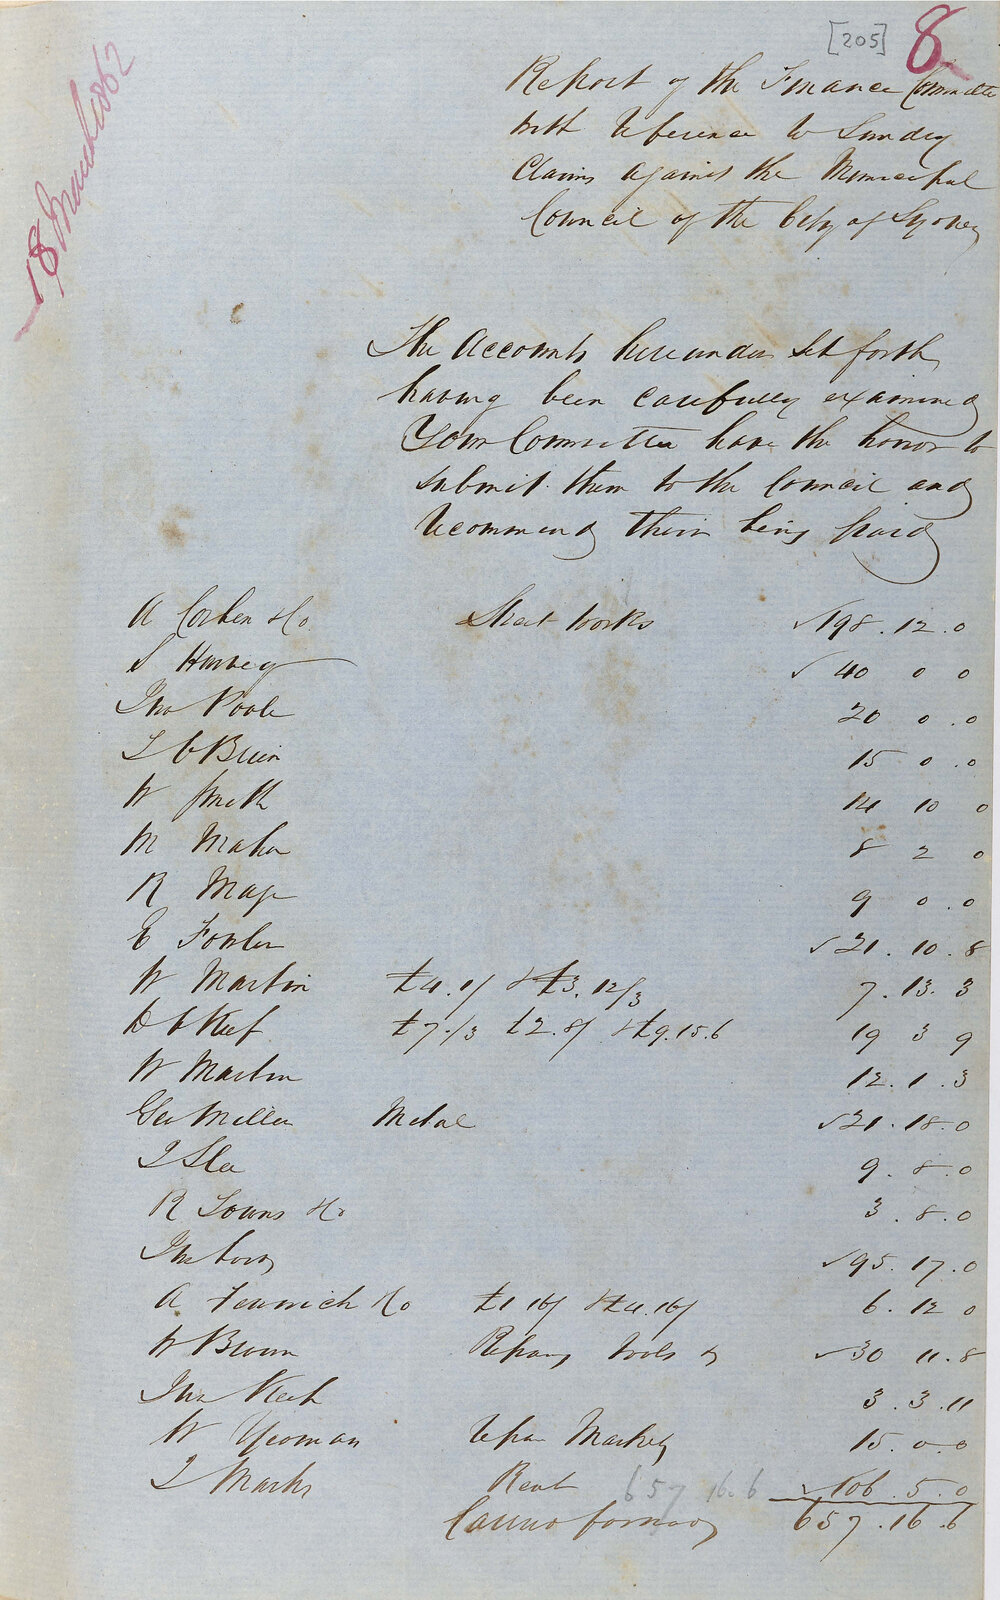 [205] 8
18 March 1862
Report of the Finance Committee
with reference to Sundry
Claims against the Municipal
Council of the City of Sydney
The Accounts hereunder set forth
having been carefully examined
Your Committee have the honor to
submit them to the Council and
recommend their being paid
A Corben & Co Street works √198.12.0
S Harvey √ 40 0 0
Jno Poole 20 0.0
T O Brien 15 0.0
W Smith 14 10 0
M Maher 8 2 0
R Mage 9 0.0
E Fowler √21.10.8
W Martin £4.1/ & £3.12/3 7.13.3
D O Keef £7./3 £2.8/ & £9.15.6 19 3 9
W Martin 12.1.3
Geo Miller Metal √21.18.0
J Slee 9.8.0
R Towns & Co 3.8.0
Jno √95.17.0
A Fenwick & Co £1 16/ & £4.16/ 6.12 0
W Brown Repairing tools &c √30 11.8
Jno Keep 3.3.11
W Yeoman repair Markets 15.0.0
J Marks Rent 657 16.6 √106.5.0
Carried forward 657.16.6